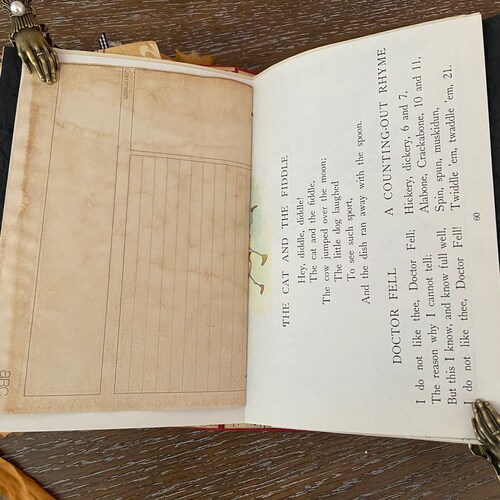 THE CAT AND THE FIDDLE
Hey, diddle, diddle!
The cat and the fiddle,
The cow jumped over the moon;
The little dog laughed
To see such sport,
And the dish ran away with the spoon.
DOCTOR FELL
I do not like thee, Doctor Fell;
The reason why I cannot tell;
But this I know, and know full well,
I do not like thee, Doctor Fell!
A COUNTING-OUT RHYME
Hickery, dickery, 6 and 7,
Alabone, Crackabone, 10 and 11,
Spin, spun, muskidun,
Twiddle 'em, twaddle 'em, 21.
60
ABC